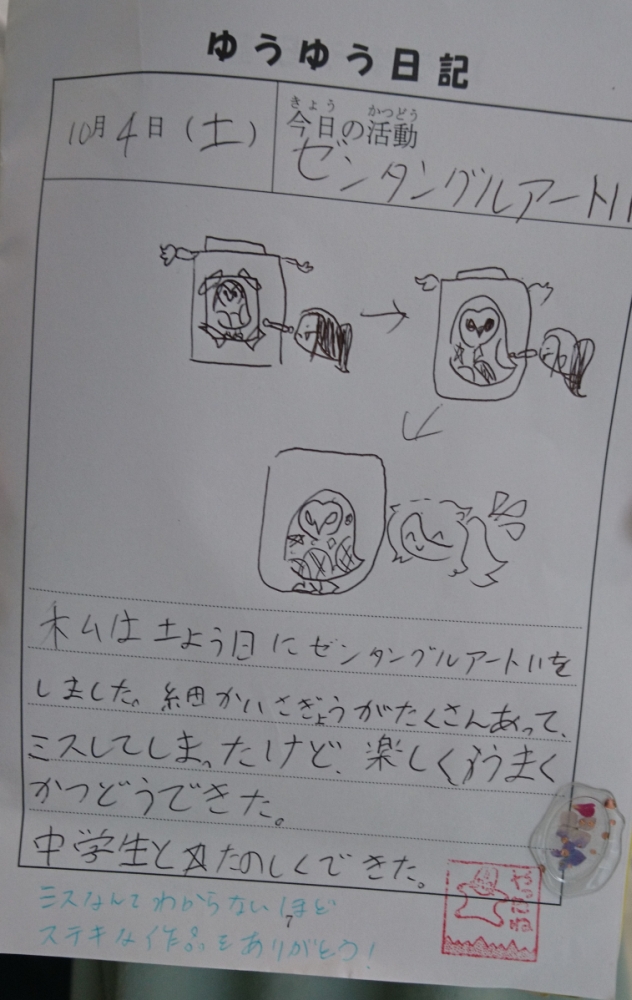 ゆうゆう日記
10月4日(土)
きょう かつどう
今日の活動
ゼンタングルアート!!
私は土よう日にゼンタングルアート!!を
しました。細かいさぎょうがたくさんあって、
ミスしてしまったけど、楽しくうまく
かつどうできた。
中学生とたのしくできた。
ミスなんてわからないほど
ステキな作品をありがとう!
7